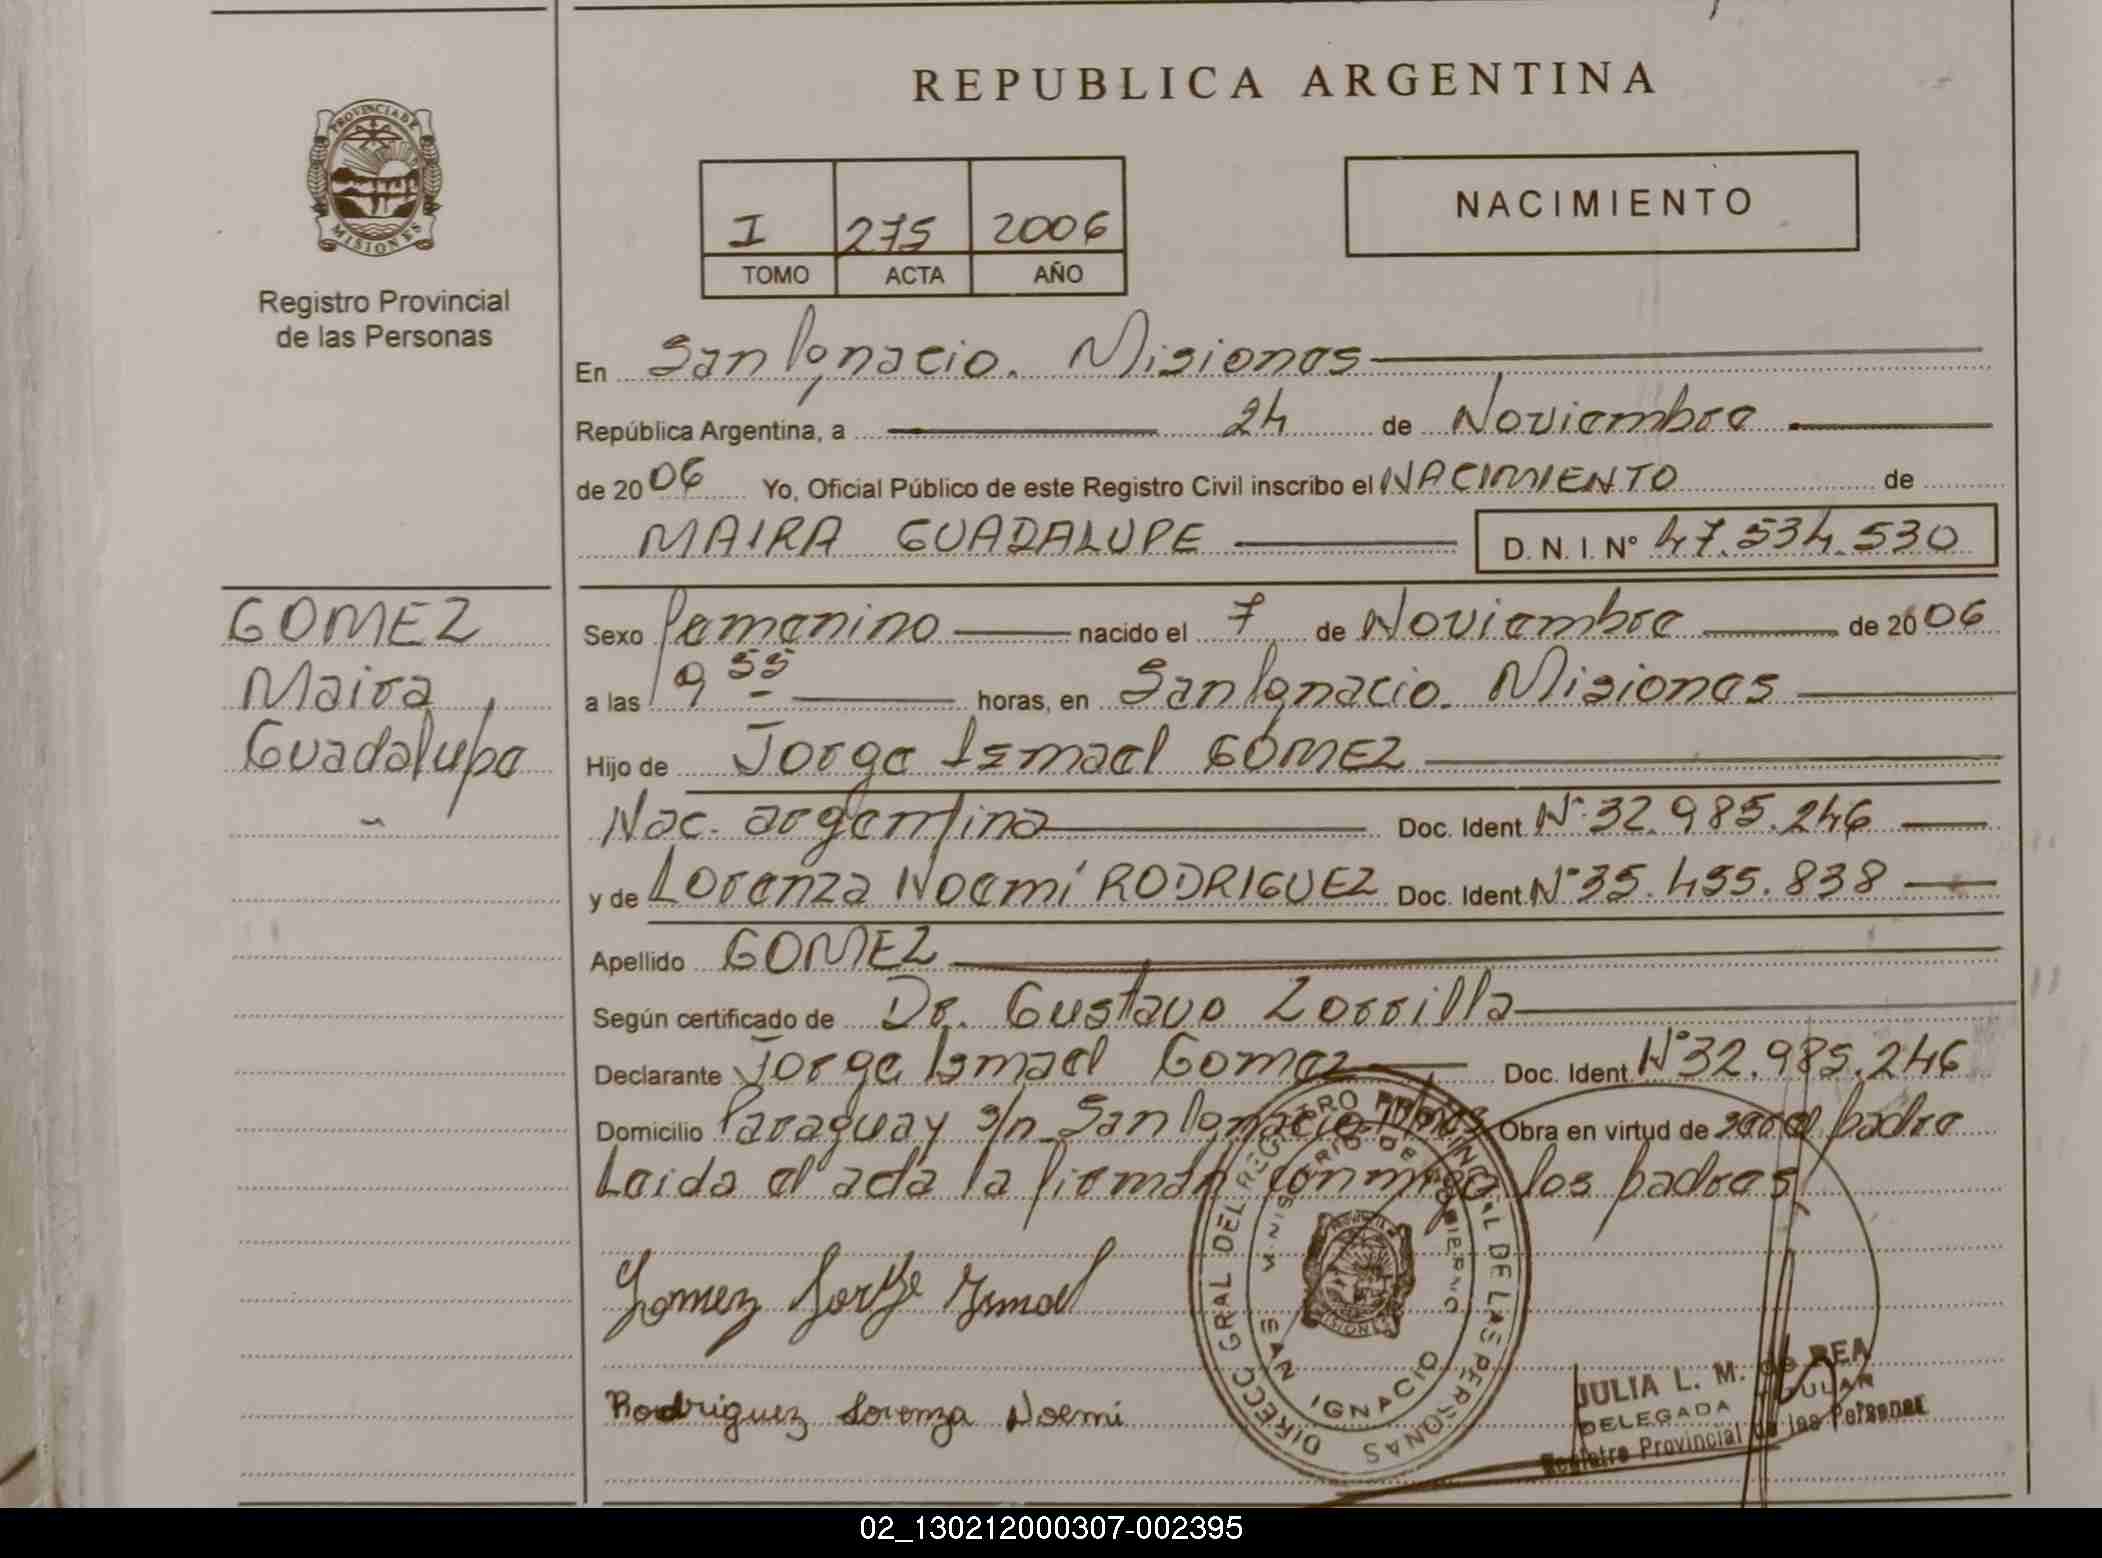 PROVINCIA DE
MISIONES
Registro Provincial
de las Personas
REPUBLICA ARGENTINA
I 275 2006
TOMO ACTA AÑO
NACIMIENTO
En San Ignacio. Misiones
República Argentina, a 24 de Noviembre
de 2006 Yo, Oficial Público de este Registro Civil inscribo el NACIMIENTO de
MAIRA GUADALUPE D. N. I. N° 47.534.530
GOMEZ
Maira
Guadalupe
Sexo femenino nacido el 7 de Noviembre de 2006
a las 9 55 horas, en San Ignacio. Misiones
Hijo de Jorge Ismael GOMEZ
Nac. argentina Doc. Ident. N° 32.985.246
y de Lorenza Noemí RODRIGUEZ Doc. Ident. N° 35.455.838
Apellido GOMEZ
Según certificado de Dr. Gustavo Zorrilla
Declarante Jorge Ismael Gomez Doc. Ident. N° 32.985.246
Domicilio Paraguay s/n San Ignacio Mnes Obra en virtud de ser el padre
Leida el acta la firman conmigo los padres
Gomez Jorge Ismael
Rodriguez Lorenza Noemi
DIRECC GRAL DEL REGISTRO PROVINCIAL DE LAS PERSONAS
MINISTERIO DE GOBIERNO
SAN IGNACIO
MISIONES
JULIA L. M. de REA
DELEGADA TITULAR
Registro Provincial de las Personas
02_130212000307-002395